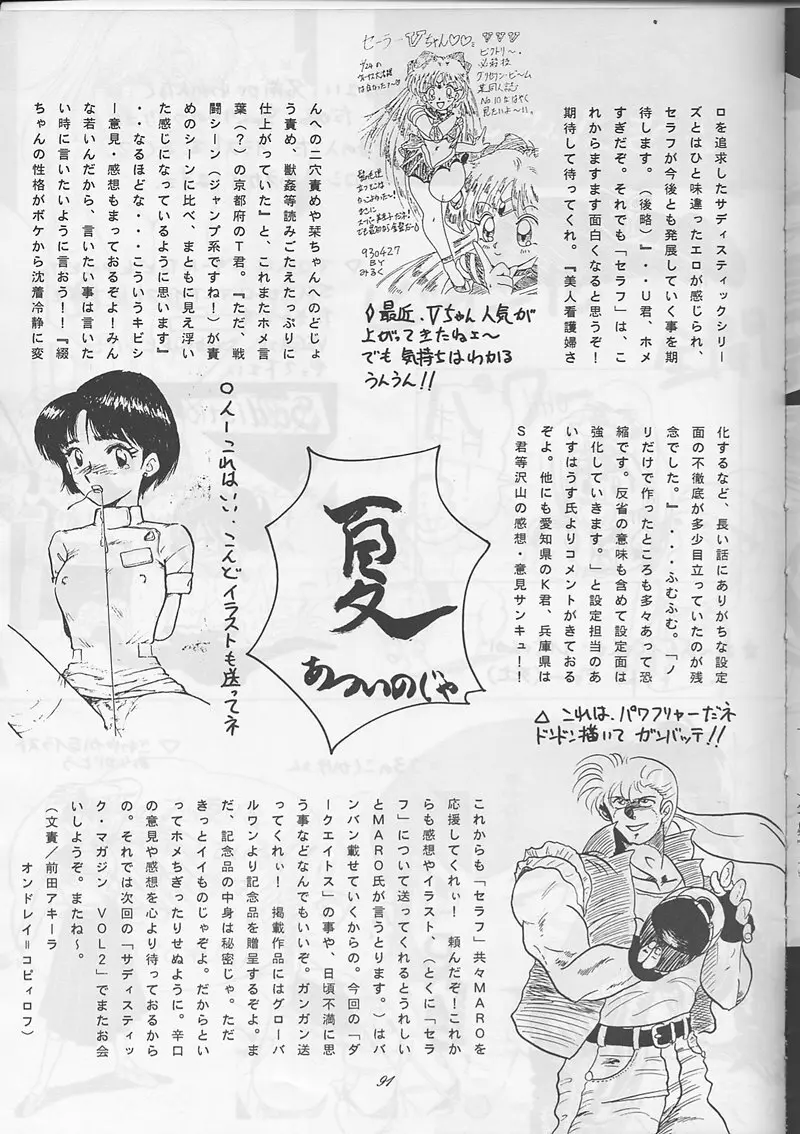 ロを追求したサディスティックシリー
ズとはひと味違ったエロが感じられ、
セラフが今後とも発展していく事を期
待します。（後略）』・・Ｕ君、ホメ
すぎだぞ。それでも「セラフ」は、こ
れからますます面白くなると思うぞ！
期待して待ってくれ。『美人看護婦さ
セーラーVちゃん♡♡
ビクトリー。
必殺技
930427
BY
みるく
◊最近、Vちゃん人気が
上がってきたねェ〜
でも気持ちはわかる
うんうん!!
んへの二穴責めや栞ちゃんへのどじょ
う責め、獣姦等読みごたえたっぷりに
仕上がっていた』と、これまたホメ言
葉（？）の京都府のＴ君。『ただ、戦
闘シーン（ジャンプ系ですね！）が責
めのシーンに比べ、まともに見え浮い
た感じになっているように思います』
・・なるほどな・・・こういうキビシ
ー意見・感想もまっておるぞよ！みん
な若いんだから、言いたい事は言いた
い時に言いたいように言おう！！『綴
ちゃんの性格がボケから沈着冷静に変
化するなど、長い話にありがちな設定
面の不徹底が多少目立っていたのが残
念でした。』・・・ふむふむ。「ノ
リだけで作ったところも多々あって恐
縮です。反省の意味も含めて設定面は
強化していきます。」と設定担当のあ
いすはうす氏よりコメントがきておる
ぞよ。他にも愛知県のＫ君、兵庫県は
Ｓ君等沢山の感想・意見サンキュ！！
夏
あついのじゃ
○人ーこれはい、、こんどイラストも送ってネ
△ これは、パワフリャーだネ
ドンドン描いて ガンバッテ!!
これからも「セラフ」共々ＭＡＲＯを
応援してくれぃ！頼んだぞ！これか
らも感想やイラスト、（とくに「セラ
フ」について送ってくれるとうれしい
とＭＡＲＯ氏が言うとります。）はバ
ンバン載せていくからの。今回の「ダ
ークエイトス」の事や、日頃不満に思
う事などなんでもいいぞ。ガンガン送
ってくれぃ！　掲載作品にはグローバ
ルワンより記念品を贈呈するぞよ。ま
だ、記念品の中身は秘密じゃ。ただ
きっとイイものじゃぞよ。だからとい
ってホメちぎったりせぬように。辛口
の意見や感想を心より待っておるから
の。それでは次回の「サディスティッ
ク・マガジン　ＶＯＬ２」でまたお会
いしようぞ。またね〜。
（文責／前田アキーラ
オンドレイ＝コピィロフ）
91